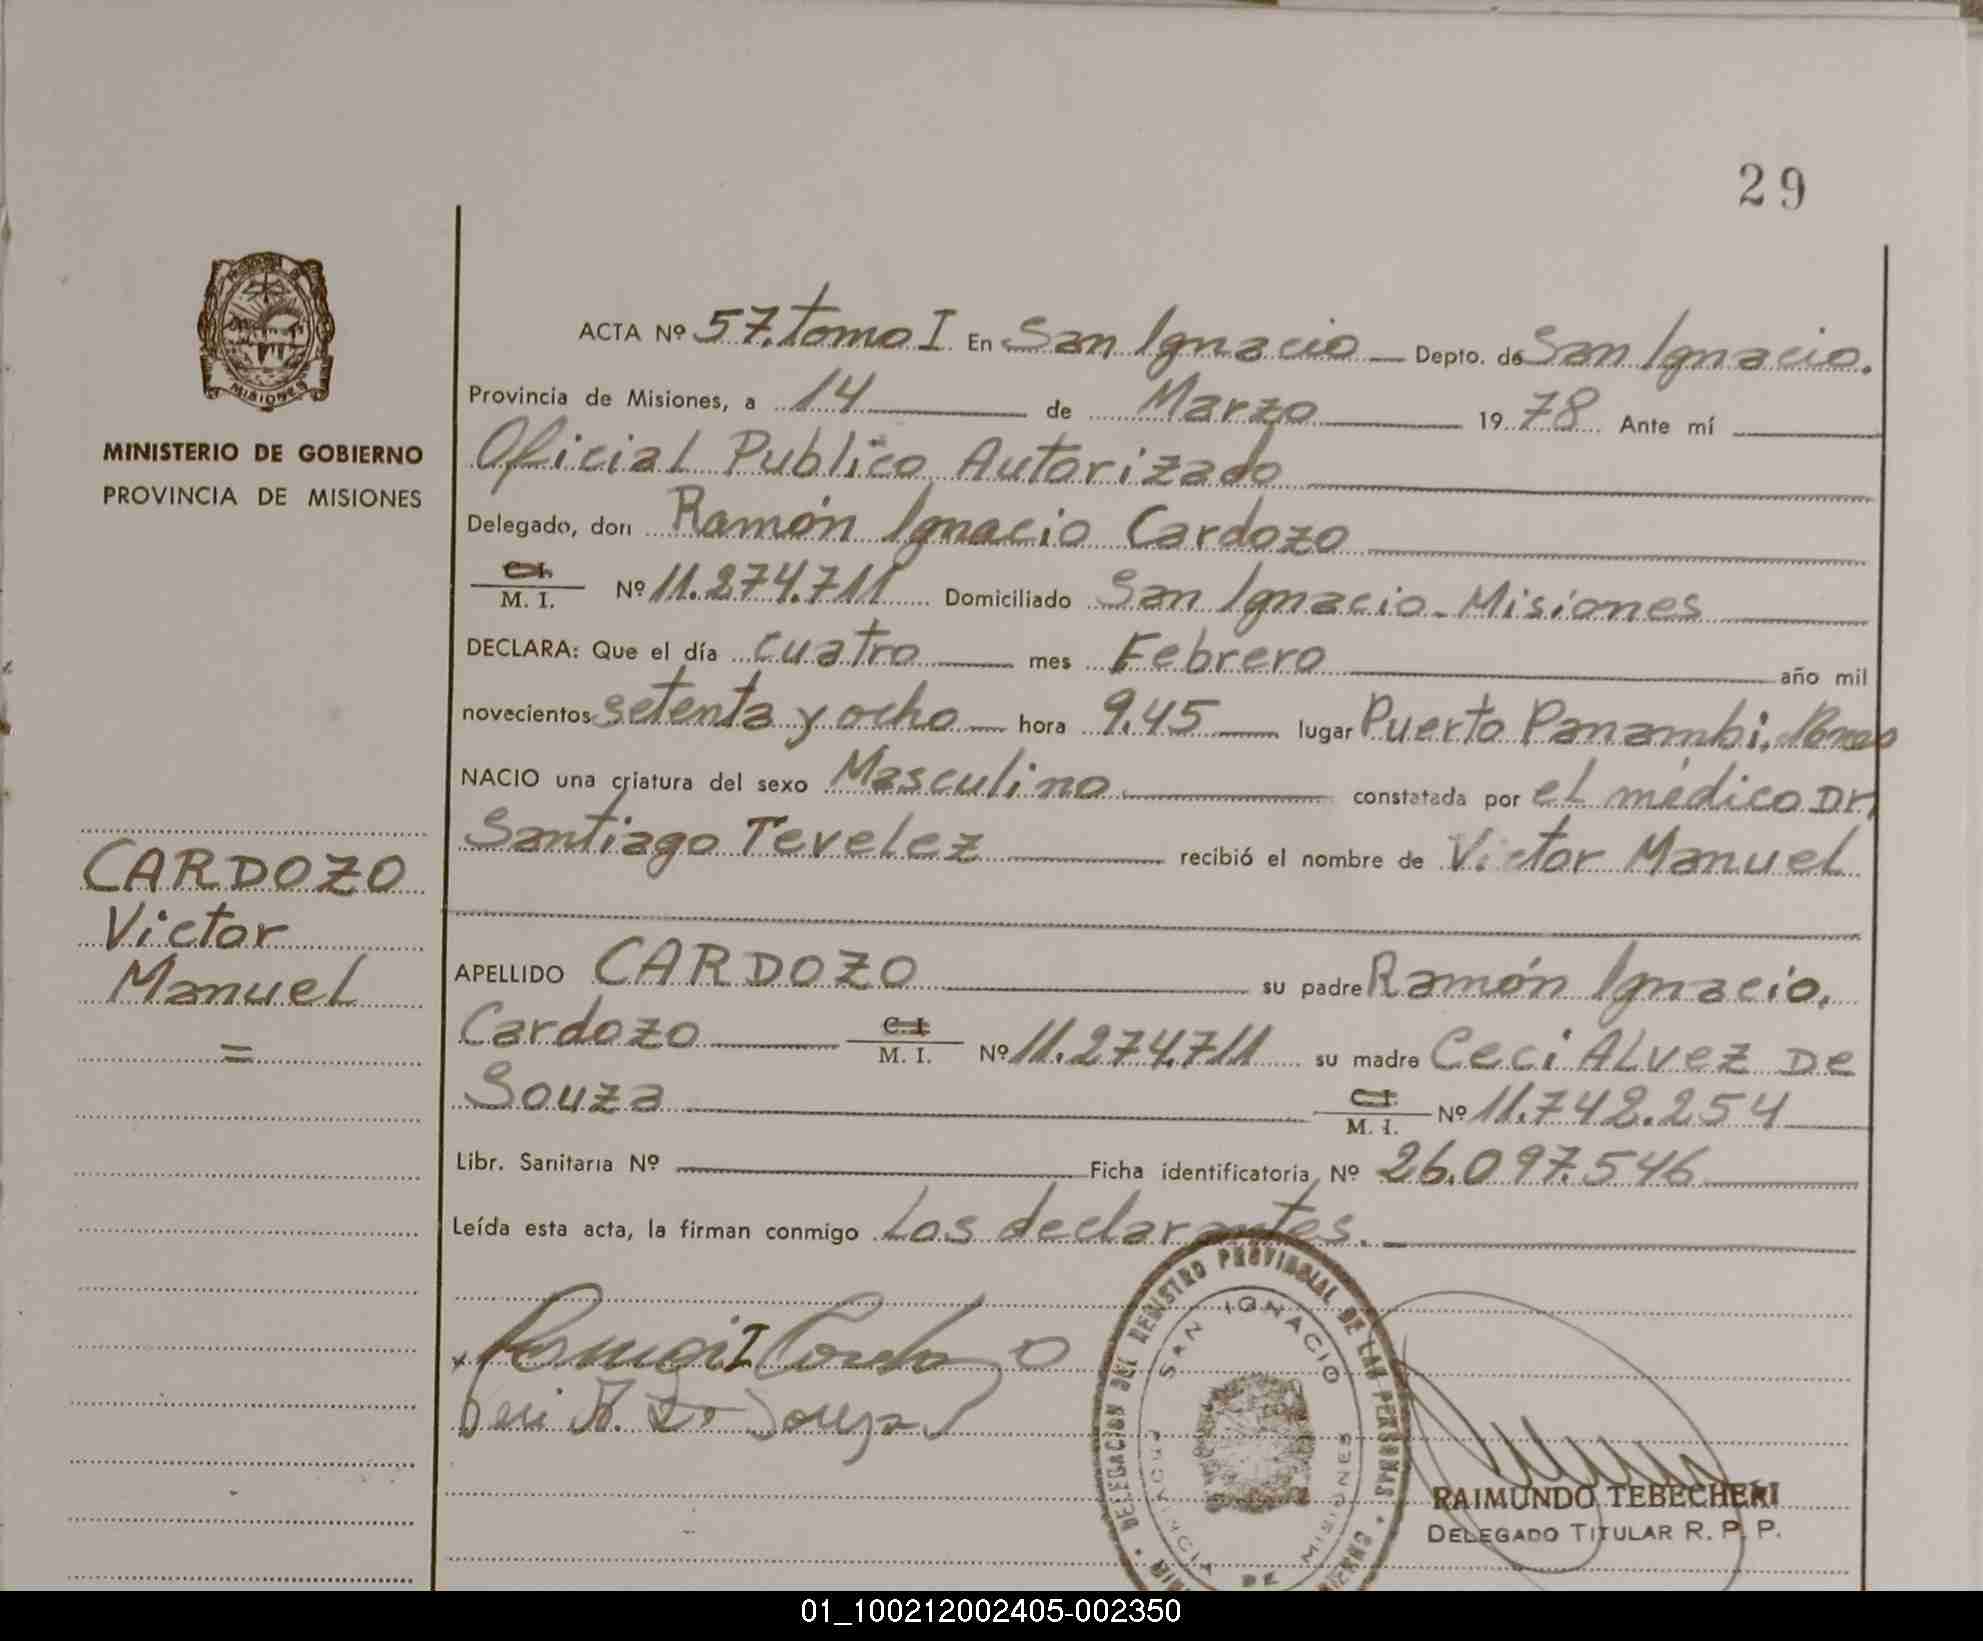 29
MISIONES
MINISTERIO DE GOBIERNO
PROVINCIA DE MISIONES
CARDOZO
Victor
Manuel
=
ACTA Nº 57. tomo I En San Ignacio Depto. de San Ignacio.
Provincia de Misiones, a 14 de Marzo 19 78 Ante mí
Oficial Publico Autorizado
Delegado, don Ramón Ignacio Cardozo
C. I.
M. I. Nº 11.274.711 Domiciliado San Ignacio - Misiones
DECLARA: Que el día cuatro mes Febrero año mil
novecientos setenta y ocho hora 9.45 lugar Puerto Panambi.
NACIO una criatura del sexo Masculino constatada por el médico Dr.
Santiago Tevelez recibió el nombre de Victor Manuel
APELLIDO CARDOZO su padre Ramón Ignacio.
Cardozo C. I. M. I. Nº 11.274.711 su madre Ceci ALvez De
Souza C. I. M. I. Nº 11.742.254
Libr. Sanitaria Nº Ficha identificatoria Nº 26.097.546
Leída esta acta, la firman conmigo Los declarantes.
DELEGACION DEL REGISTRO PROVINCIAL DE LAS PERSONAS
SAN IGNACIO
MISIONES
DE
RAIMUNDO TEBECHERI
DELEGADO TITULAR R. P. P.
01_100212002405-002350